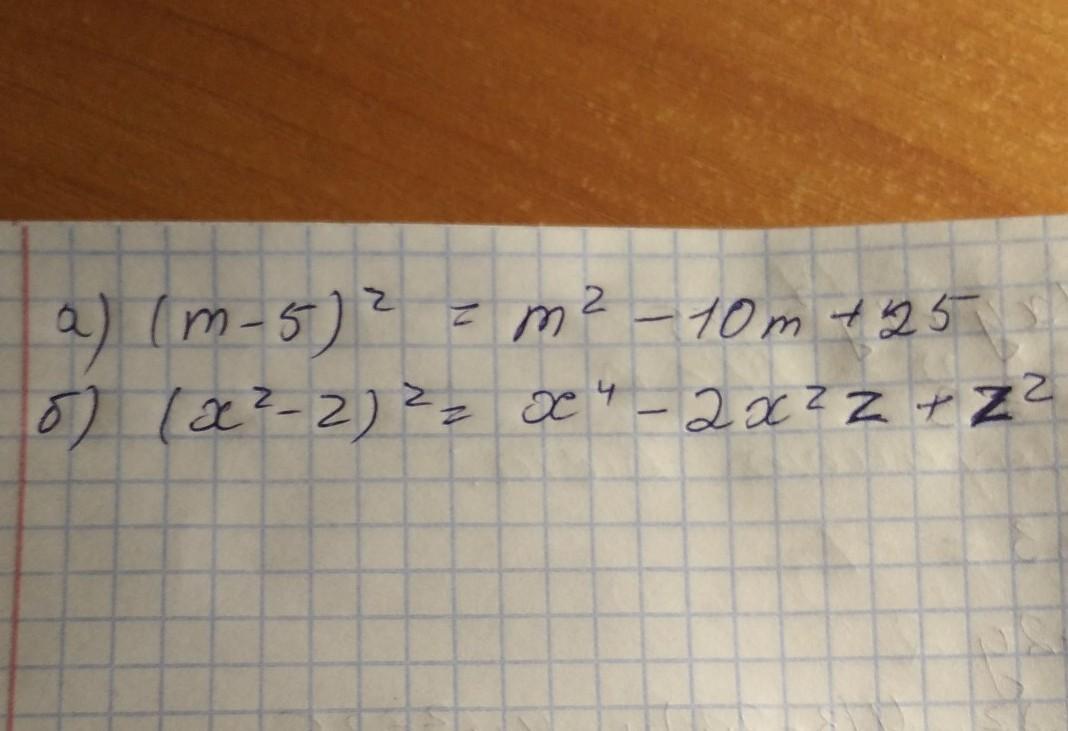 а) (m-5)² = m² - 10m + 25
б) (x²-z)² = x⁴ - 2x²z + z²